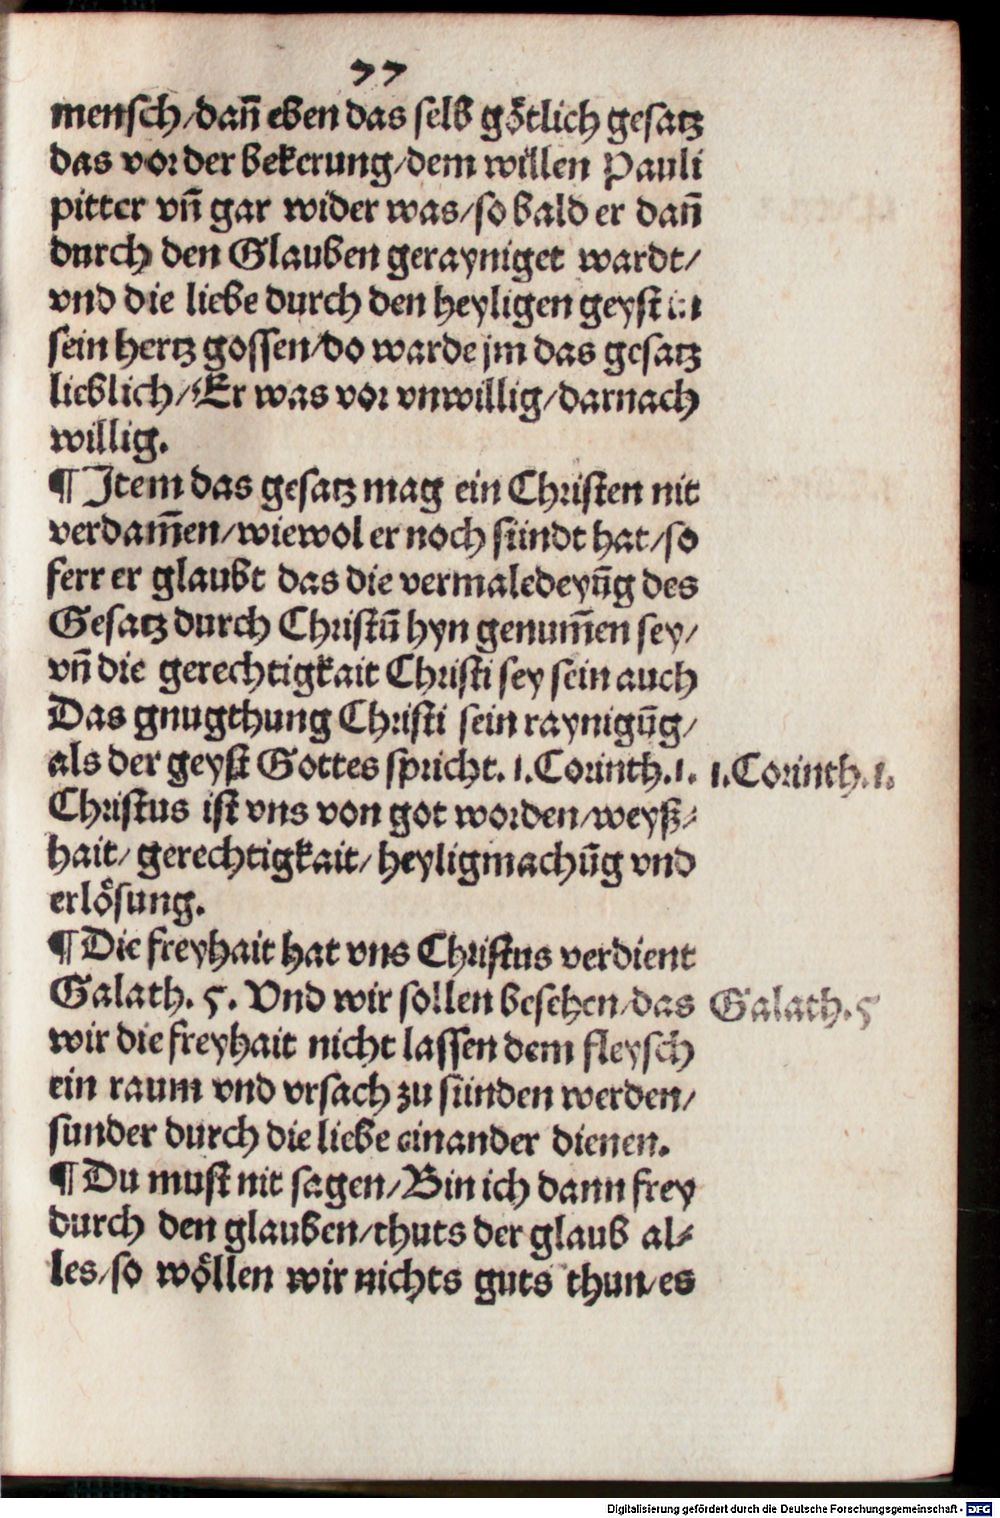 77
mensch/dañ eben das selb götlich gesatz
das vor der bekerung/dem willen Pauli
pitter vñ gar wider was/so bald er dañ
durch den Glauben gerayniget wardt/
vnd die liebe durch den heyligen geyst in
sein hertz gossen/do warde jm das gesatz
lieblich/Er was vor vnwillig/darnach
willig.
¶ Item das gesatz mag ein Christen nit
verdam̃en/wiewol er noch sündt hat/so
ferr er glaubt das die vermaledeyũg des
Gesatz durch Christũ hyn genum̃en sey/
vñ die gerechtigkait Christi sey sein auch
Das gnugthung Christi sein raynigũg/
als der geyst Gottes spricht. 1.Corinth.1. 1.Corinth.1.
Christus ist vns von got worden/weyß⸗
hait/ gerechtigkait/ heyligmachũg vnd
erlösung.
¶ Die freyhait hat vns Christus verdient
Galath. 5. Vnd wir sollen besehen/das Galath.5
wir die freyhait nicht lassen dem fleysch
ein raum vnd vrsach zu sünden werden/
sunder durch die liebe einander dienen.
¶ Du must nit sagen/Bin ich dann frey
durch den glauben/thuts der glaub al⸗
les/so wöllen wir nichts guts thun/es
Digitalisierung gefördert durch die Deutsche Forschungsgemeinschaft - DFG